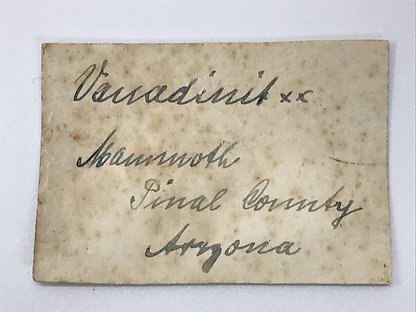 Vanadinit xx
Mammoth
Pinal County
Arizona